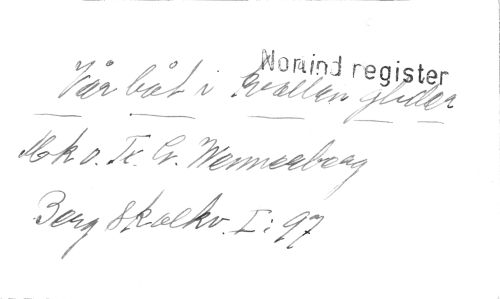 Nomind register
Vår båt i kvällen glider
M k o. Tx. Gr. Wennerberg
Berg Skolkv. I: 97